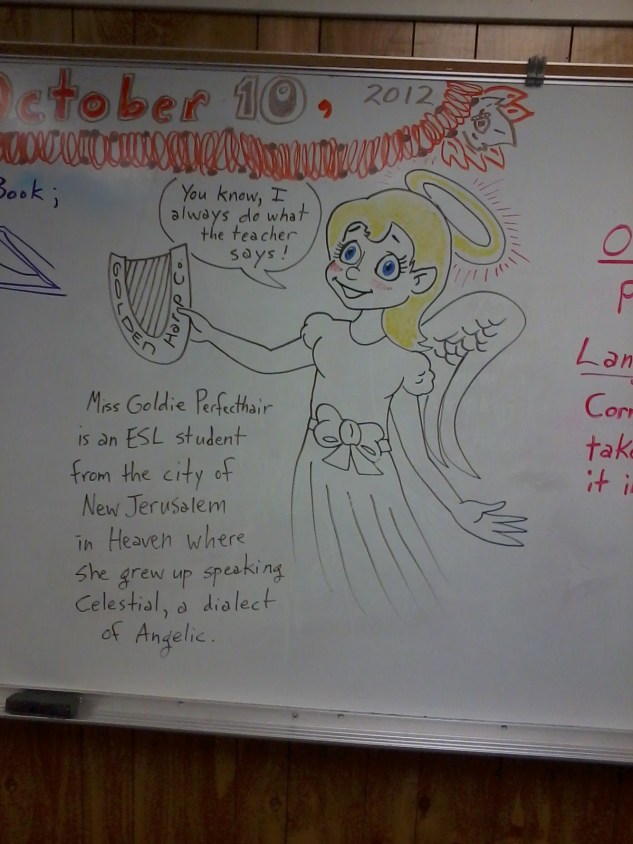 October 10, 2012
Book;
You know, I
always do what
the teacher
says!
GOLDEN
Harp Co.
Miss Goldie Perfecthair
is an ESL student
from the city of
New Jerusalem
in Heaven where
she grew up speaking
Celestial, a dialect
of Angelic.
O
P
Lan
Corr
take
it i